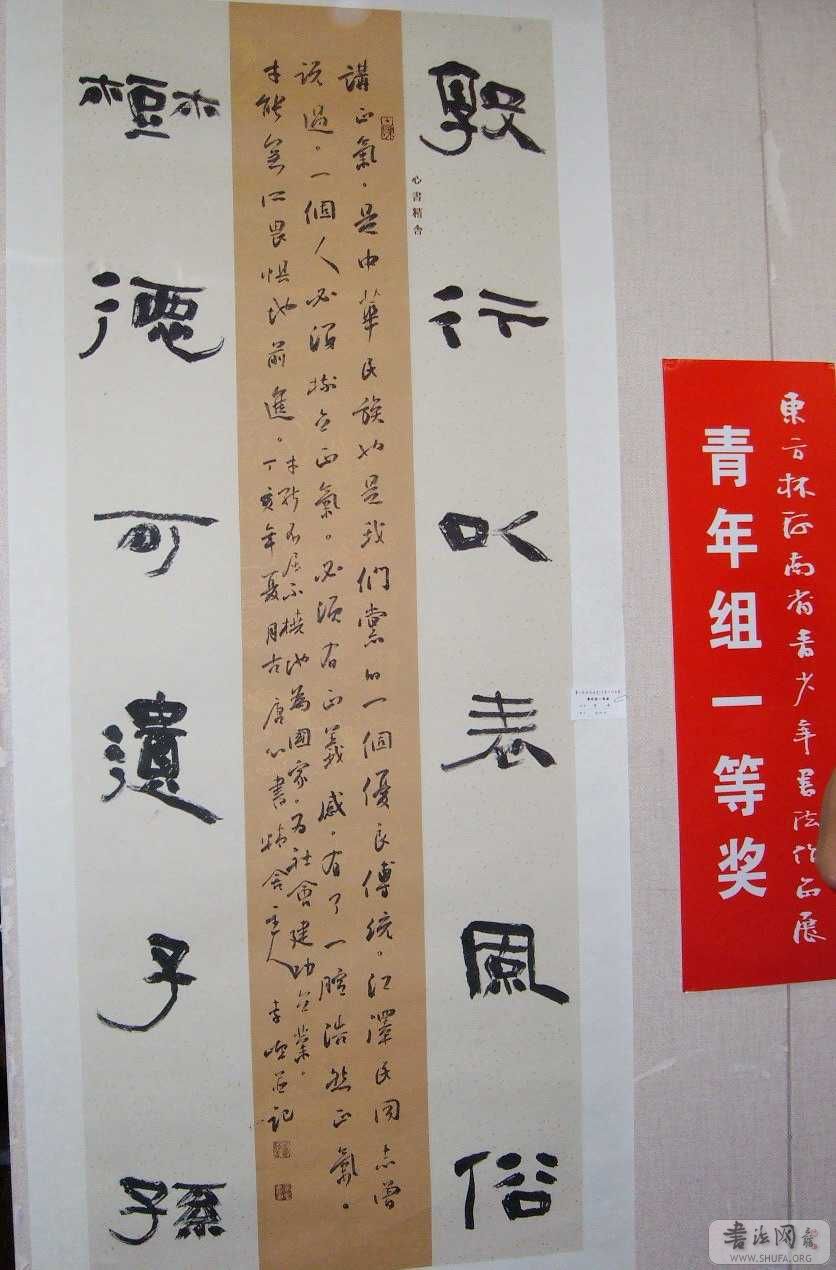 敦行以表風俗
心書精舍
講正氣。是中華民族也是我們黨的一個優良傳統。江澤民同志曾
説過。一個人必須樹立正氣。必須有正義感。有了一腔浩然正氣。
才能無所畏惧地前進。
才能不屈不撓地為國家。為社會建功立業。
丁亥年夏月古唐心書精舍主人李並記
樹德可遺子孫
東方杯河南省青少年書法作品展
青年组一等奖
書法网
WWW.SHUFA.ORG